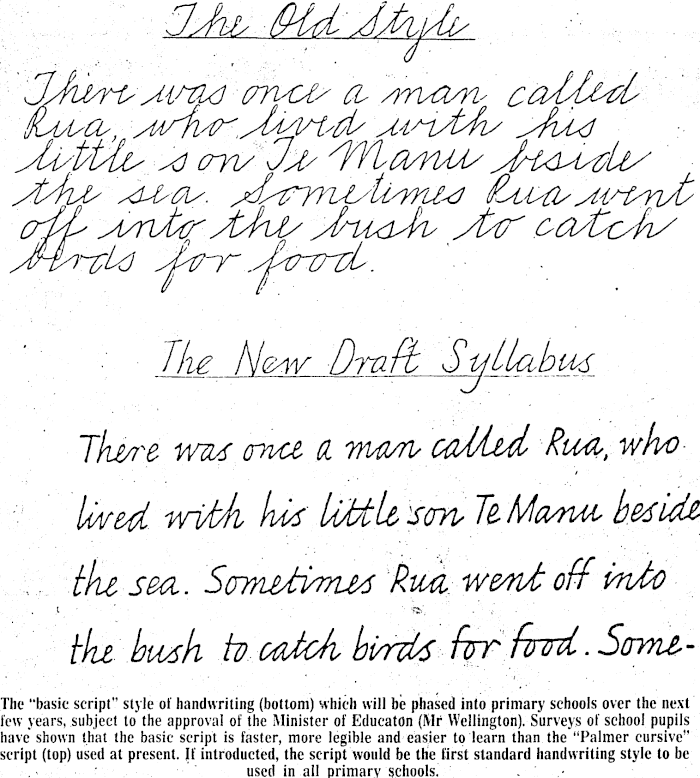 The Old Style
There was once a man called
Rua, who lived with his
little son Te Manu beside
the sea. Sometimes Rua went
off into the bush to catch
birds for food.
The New Draft Syllabus
There was once a man called Rua, who
lived with his little son Te Manu beside
the sea. Sometimes Rua went off into
the bush to catch birds for food. Some-
The "basic script" style of handwriting (bottom) which will be phased into primary schools over the next
few years, subject to the approval of the Minister of Educaton (Mr Wellington). Surveys of school pupils
have shown that the basic script is faster, more legible and easier to learn than the "Palmer cursive"
script (top) used at present. If introducted, the script would be the first standard handwriting style to be
used in all primary schools.